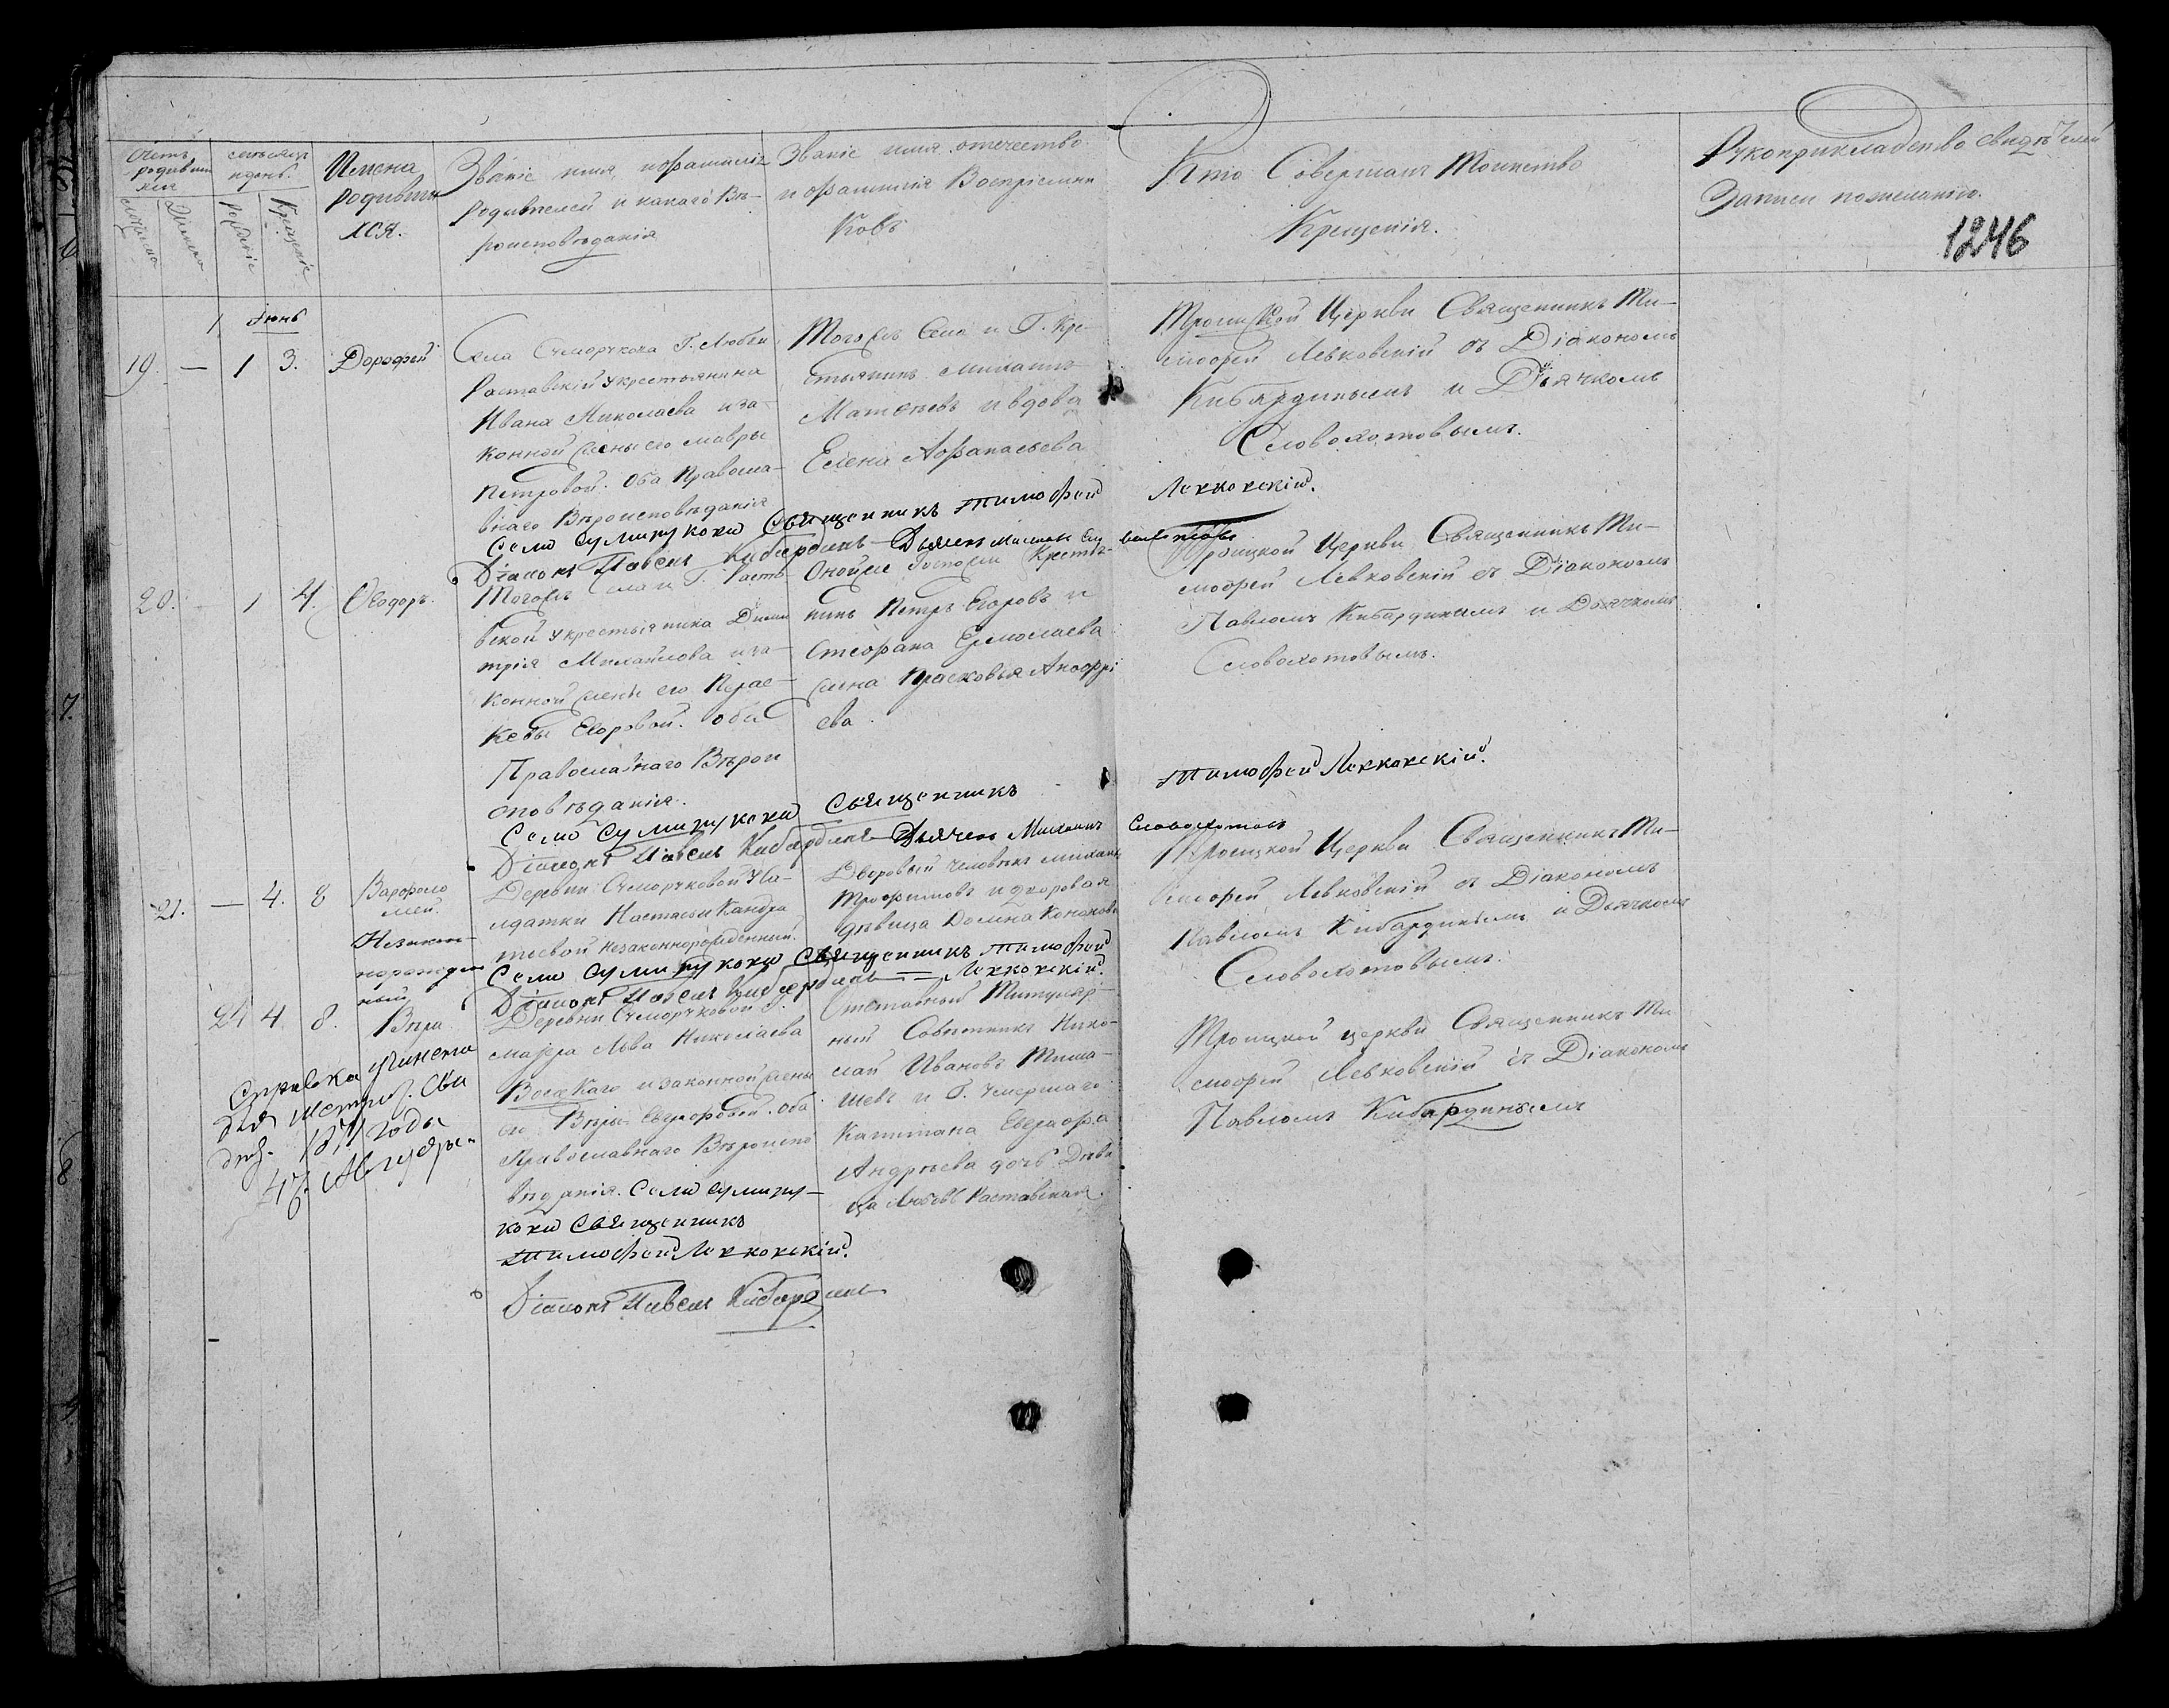 Счетъ родившихся
мужеска
женска
месяцъ и день
рожденіе
Крещеніе
Имена
родивших
хся.
Званіе имя, и фамилія
родителей и какаго Вѣ-
роисповѣданія
Званіе имя отечество
и фамилія Воспріемни
ковъ
Кто Совершалъ Таинство
Крещенія.
Рукоприкладство свидѣтелей
Записи по желанію.
1246
Іюнь
19. — 1 3. Дорофей
Села
Раставскій у крестьянина
Ивана Николаева и за-
конной жены его Мавры
Петровой. Оба Правосла-
внаго Вѣроисповѣданія
Тогожъ Села и Г. Кре-
стьянинъ Михаилъ
Матвѣевъ и вдова
Елена Афанасьева
Троицкой Церкви Священникъ Ти-
мофей Левковскій съ Діакономъ
Кибардинымъ и Дьячкомъ
Словохотовымъ.
Священникъ Тимофей
Левковскій.
Діаконъ Павелъ Кибардинъ Дьячекъ Михаилъ
20. 1 4. Ѳеодоръ.
Тогожъ Села и Г. Раста
вской у крестьянина Дими
трія Михайлова и за-
конной жены его Парас-
кевы Егоровой. оба
Православнаго Вѣрои
сповѣданія.
Оной же Госпожи Крестья-
нинъ Петръ Егоровъ и
Стефана Ермолаева
жена Прасковья
ева
Троицкой Церкви Священникъ Ти-
мофей Левковскій съ Діакономъ
Павломъ Кибардинымъ и Дьячкомъ
Словохотовымъ.
Священникъ
Тимофей Левковскій.
Діаконъ Павелъ Кибардинъ Дьячекъ Михаилъ Словохотовъ
21. — 4. 8 Варфоло
мей.
Незакон-
норожден
ный
Деревни
Настасьи Кандра
тьевой незаконнорожденный.
Дворовый человѣкъ Михаилъ
Трофимовъ и дворовая
дѣвица Домна
Троицкой Церкви Священникъ Ти-
мофей Левковскій съ Діакономъ
Павломъ Кибардинымъ и Дьячкомъ
Словохотовымъ.
Священникъ Тимофей
Левковскій.
Діаконъ Павелъ Кибардинъ
4 8. Вѣра.
Деревни
маіора Льва Николаева
и законной жены
его Вѣры
оба
Православнаго Вѣроиспо
вѣданія.
Священникъ
Тимофей Левковскій.
Діаконъ Павелъ Кибардинъ
Отставный Титуляр-
ный Совѣтникъ Нико-
лай Ивановъ Тима-
шевъ и Г. умершаго
Капитана
Андрѣева дочь Дѣви
ца Любовь Раставская.
Троицкой церкви Священникъ Ти
мофей Левковскій съ Діакономъ
Павломъ Кибардинымъ
Справка
для
года